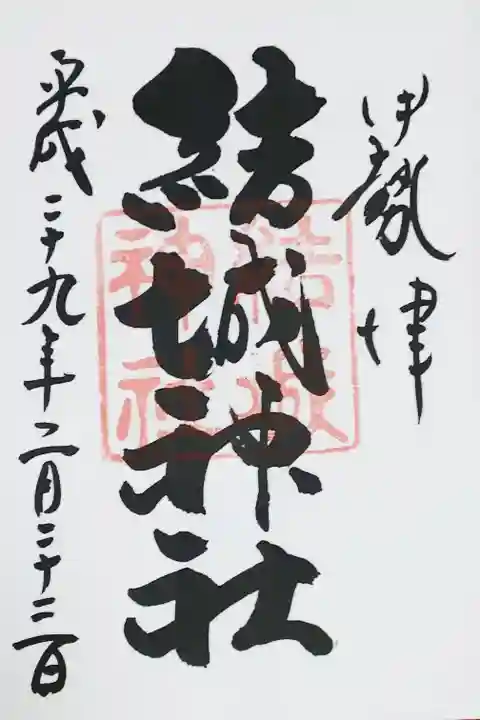 伊勢津
結城神社
平成二十九年二月二十三日
結城
神社